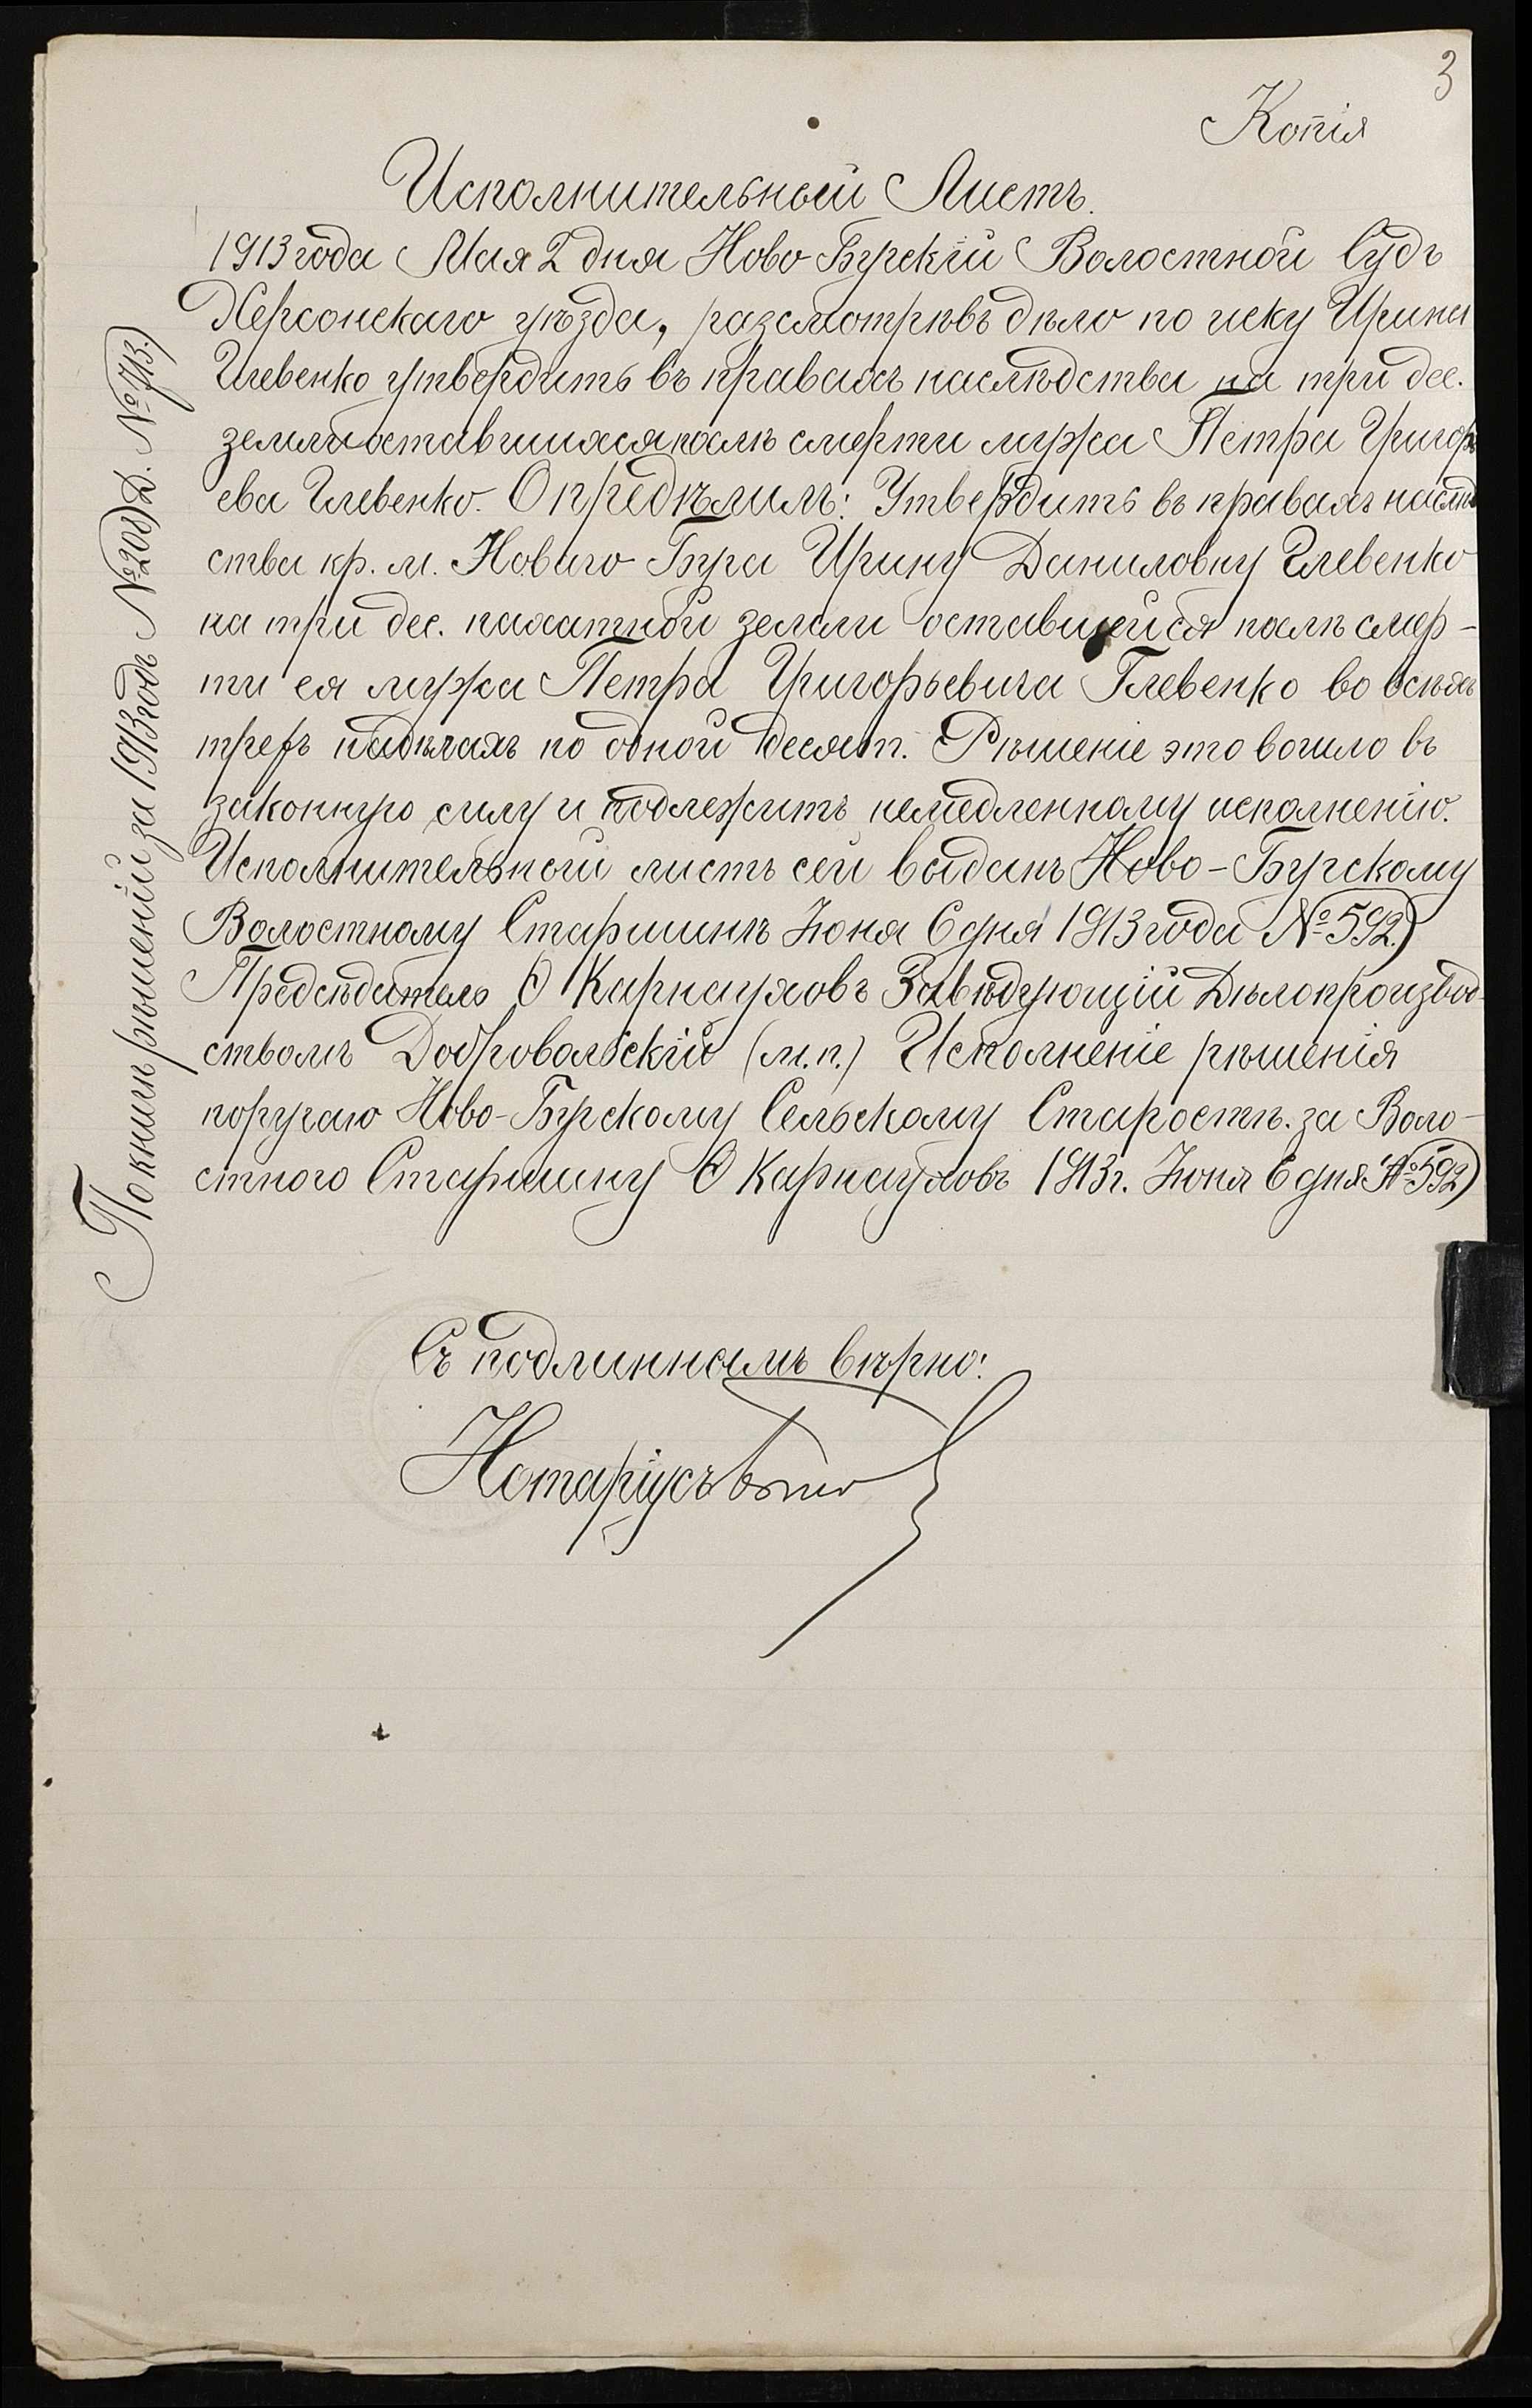 3
Копія
Исполнительный Листъ.
1913 года Мая 2 дня Ново Бугскій Волостной Судъ
Херсонскаго уѣзда, разсмотрѣвъ дѣло по иску Ирины
Глевенко утвердить въ правахъ наслѣдства на три дес.
земли оставшихся послѣ смерти мужа Петра Григорь
ева Глевенко. Опредѣлилъ: Утвердить въ правахъ наслѣд
ства кр. м. Новаго Буга Ирину Даниловну Глевенко
на три дес. пахатной земли оставшейся послѣ смер-
ти ея мужа Петра Григорьевича Глевенко во всѣхъ
трехъ надѣлахъ по одной десят. Рѣшеніе это вошло въ
законную силу и подлежитъ немедленному исполненію.
Исполнительный листъ сей выданъ Ново-Бугскому
Волостному Старшинѣ Іюня 6 дня 1913 года № 592.)
Предсѣдатель О Карнауховъ Завѣдующій Дѣлопроизвод-
ствомъ Добровольскій (м.п.) Исполненіе рѣшенія
поручаю Ново-Бугскому Сельскому Старостѣ. за Воло-
стного Старшину О Карнауховъ 1913 г. Іюня 6 дня № 592)
По книгѣ рѣшеній за 1913 годъ № 200) Д. № 713.)
Съ подлиннымъ вѣрно:
Нотаріусъ